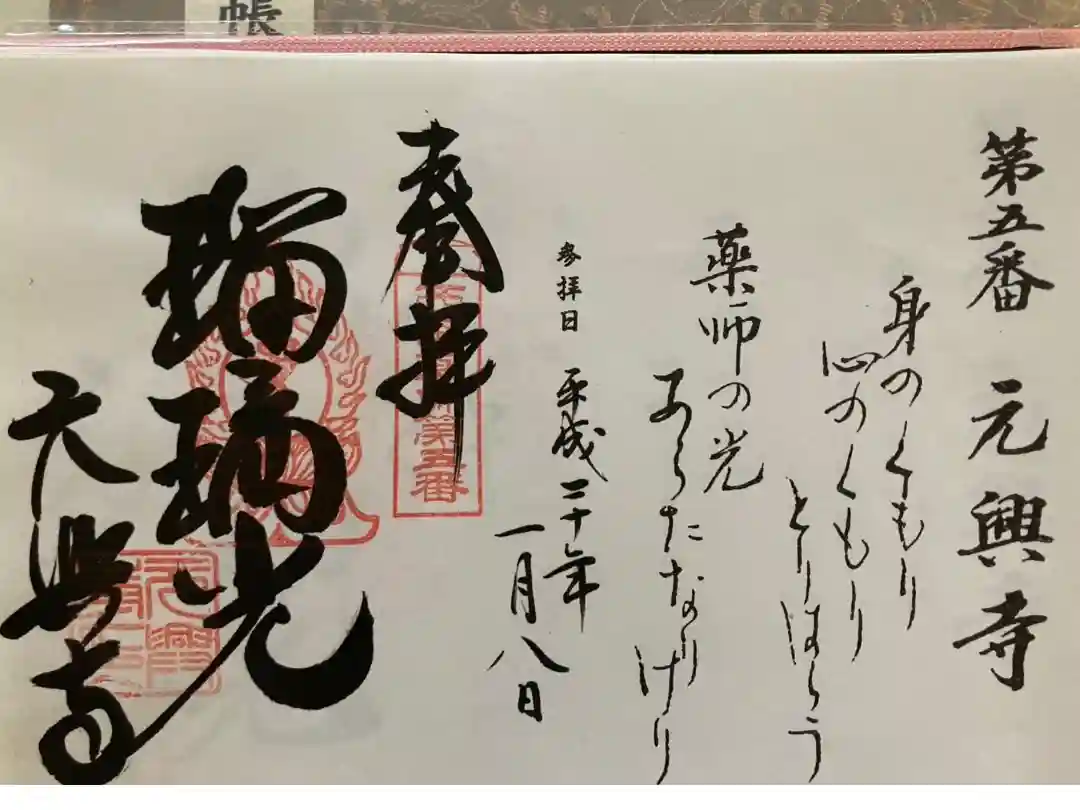 帳
第五番 元興寺
身のくもり
心のくもり
とりはらう
薬師の光
あらたなりけり
参拝日 平成二十年
一月八日
奉拝
第五番
瑠璃光
元興寺